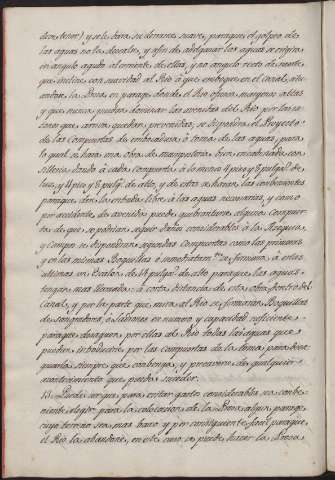 dice, tener) y se le hara su derrame suave, para que el golpe de
las aguas no la devalen, y afin de
en angulo agudo al oriente de ellas, y no angulo recto de suerte
que incline con suavidad al Rio à que emboque en el Canal,
la Boca, en parage donde el Rio ofrezca margenes altas
y que nunca puedan dominar las avenidas del Rio por las ra-
zones que arriva quedan prevenidas, se dispondra el Proyecto
de las compuertas de embocadura ò toma de las aguas, para
lo qual se hara una obra de mamposteria bien
silleria dando à cada compuerta à lo menos 4 pies y 8 pulgs. de
luz, y 4 pies y 8 pulgs. de alto, y de estas se haran las combenientes
para que den la entrada libre à las aguas necesarias, y como
por accidente de avenida puede quebrantarse alguna Compuer-
ta de que se podrian seguir daños considerables à la Azequia
y Campo se dispondran segundas Compuertas como las primeras
y en las mismas Boquillas è inmediatamte. se formará, à estas
ultimas un Escalon de 14 pulgs. de alto para que las aguas
tengan mas à corta distancia de esta obra dentro del
Canal, y por la parte que mira al Rio se formaran Boquillas
de sangradera, ò Ladrones en numero y capacidad suficiente
para que desaguen por ellas al Rio todas las aguas que
pueden introducirse por las compuertas de la toma para desa-
guarla siempre que combenga, y precaverse de qualquier
acontecimiento que pueda suceder.
13. Puede ser que para evitar gasto considerable, sea combe-
niente elegir para la colocacion de la Boca algun parage
cuyo terreno sea mas baxo y por consiguiente facil para que
el Rio la abandone, en este caso se puede hacer la Boca